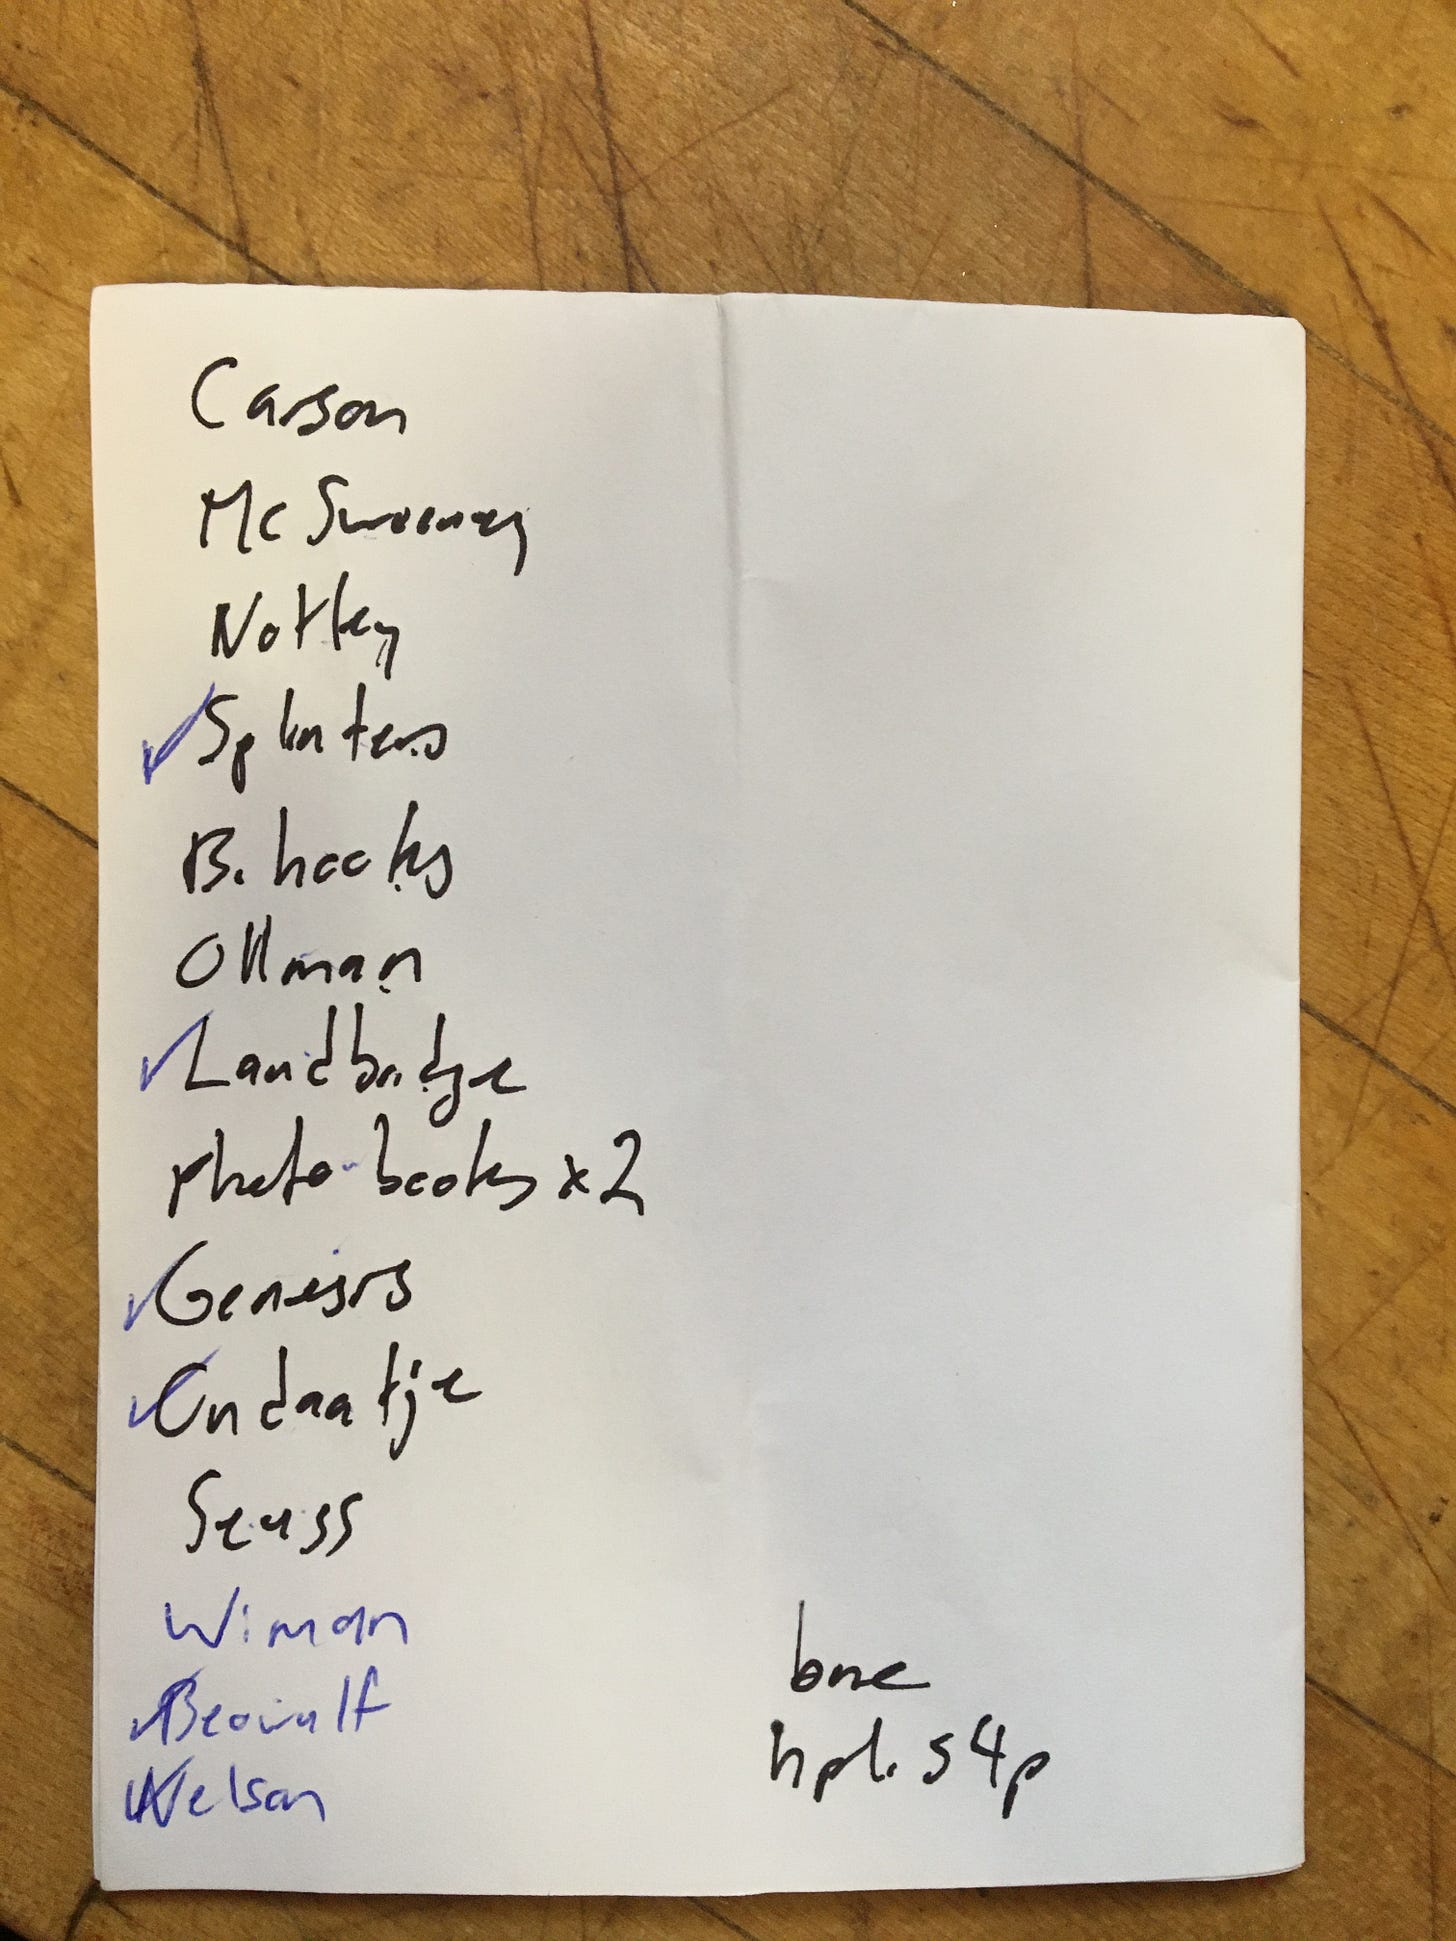 Carson
McSweeney
Notley
✓ Splinters
B. hooks
Ollman
✓ Landbridge
photo books x2
✓ Genesis
✓ Ondaatje
Seuss
Wiman
✓ Beowulf
✓ Nelson
hpl. s4p